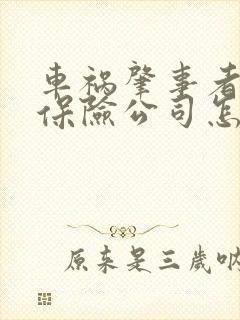 車禍肇事者
保險公司怎
原来是三歲吶